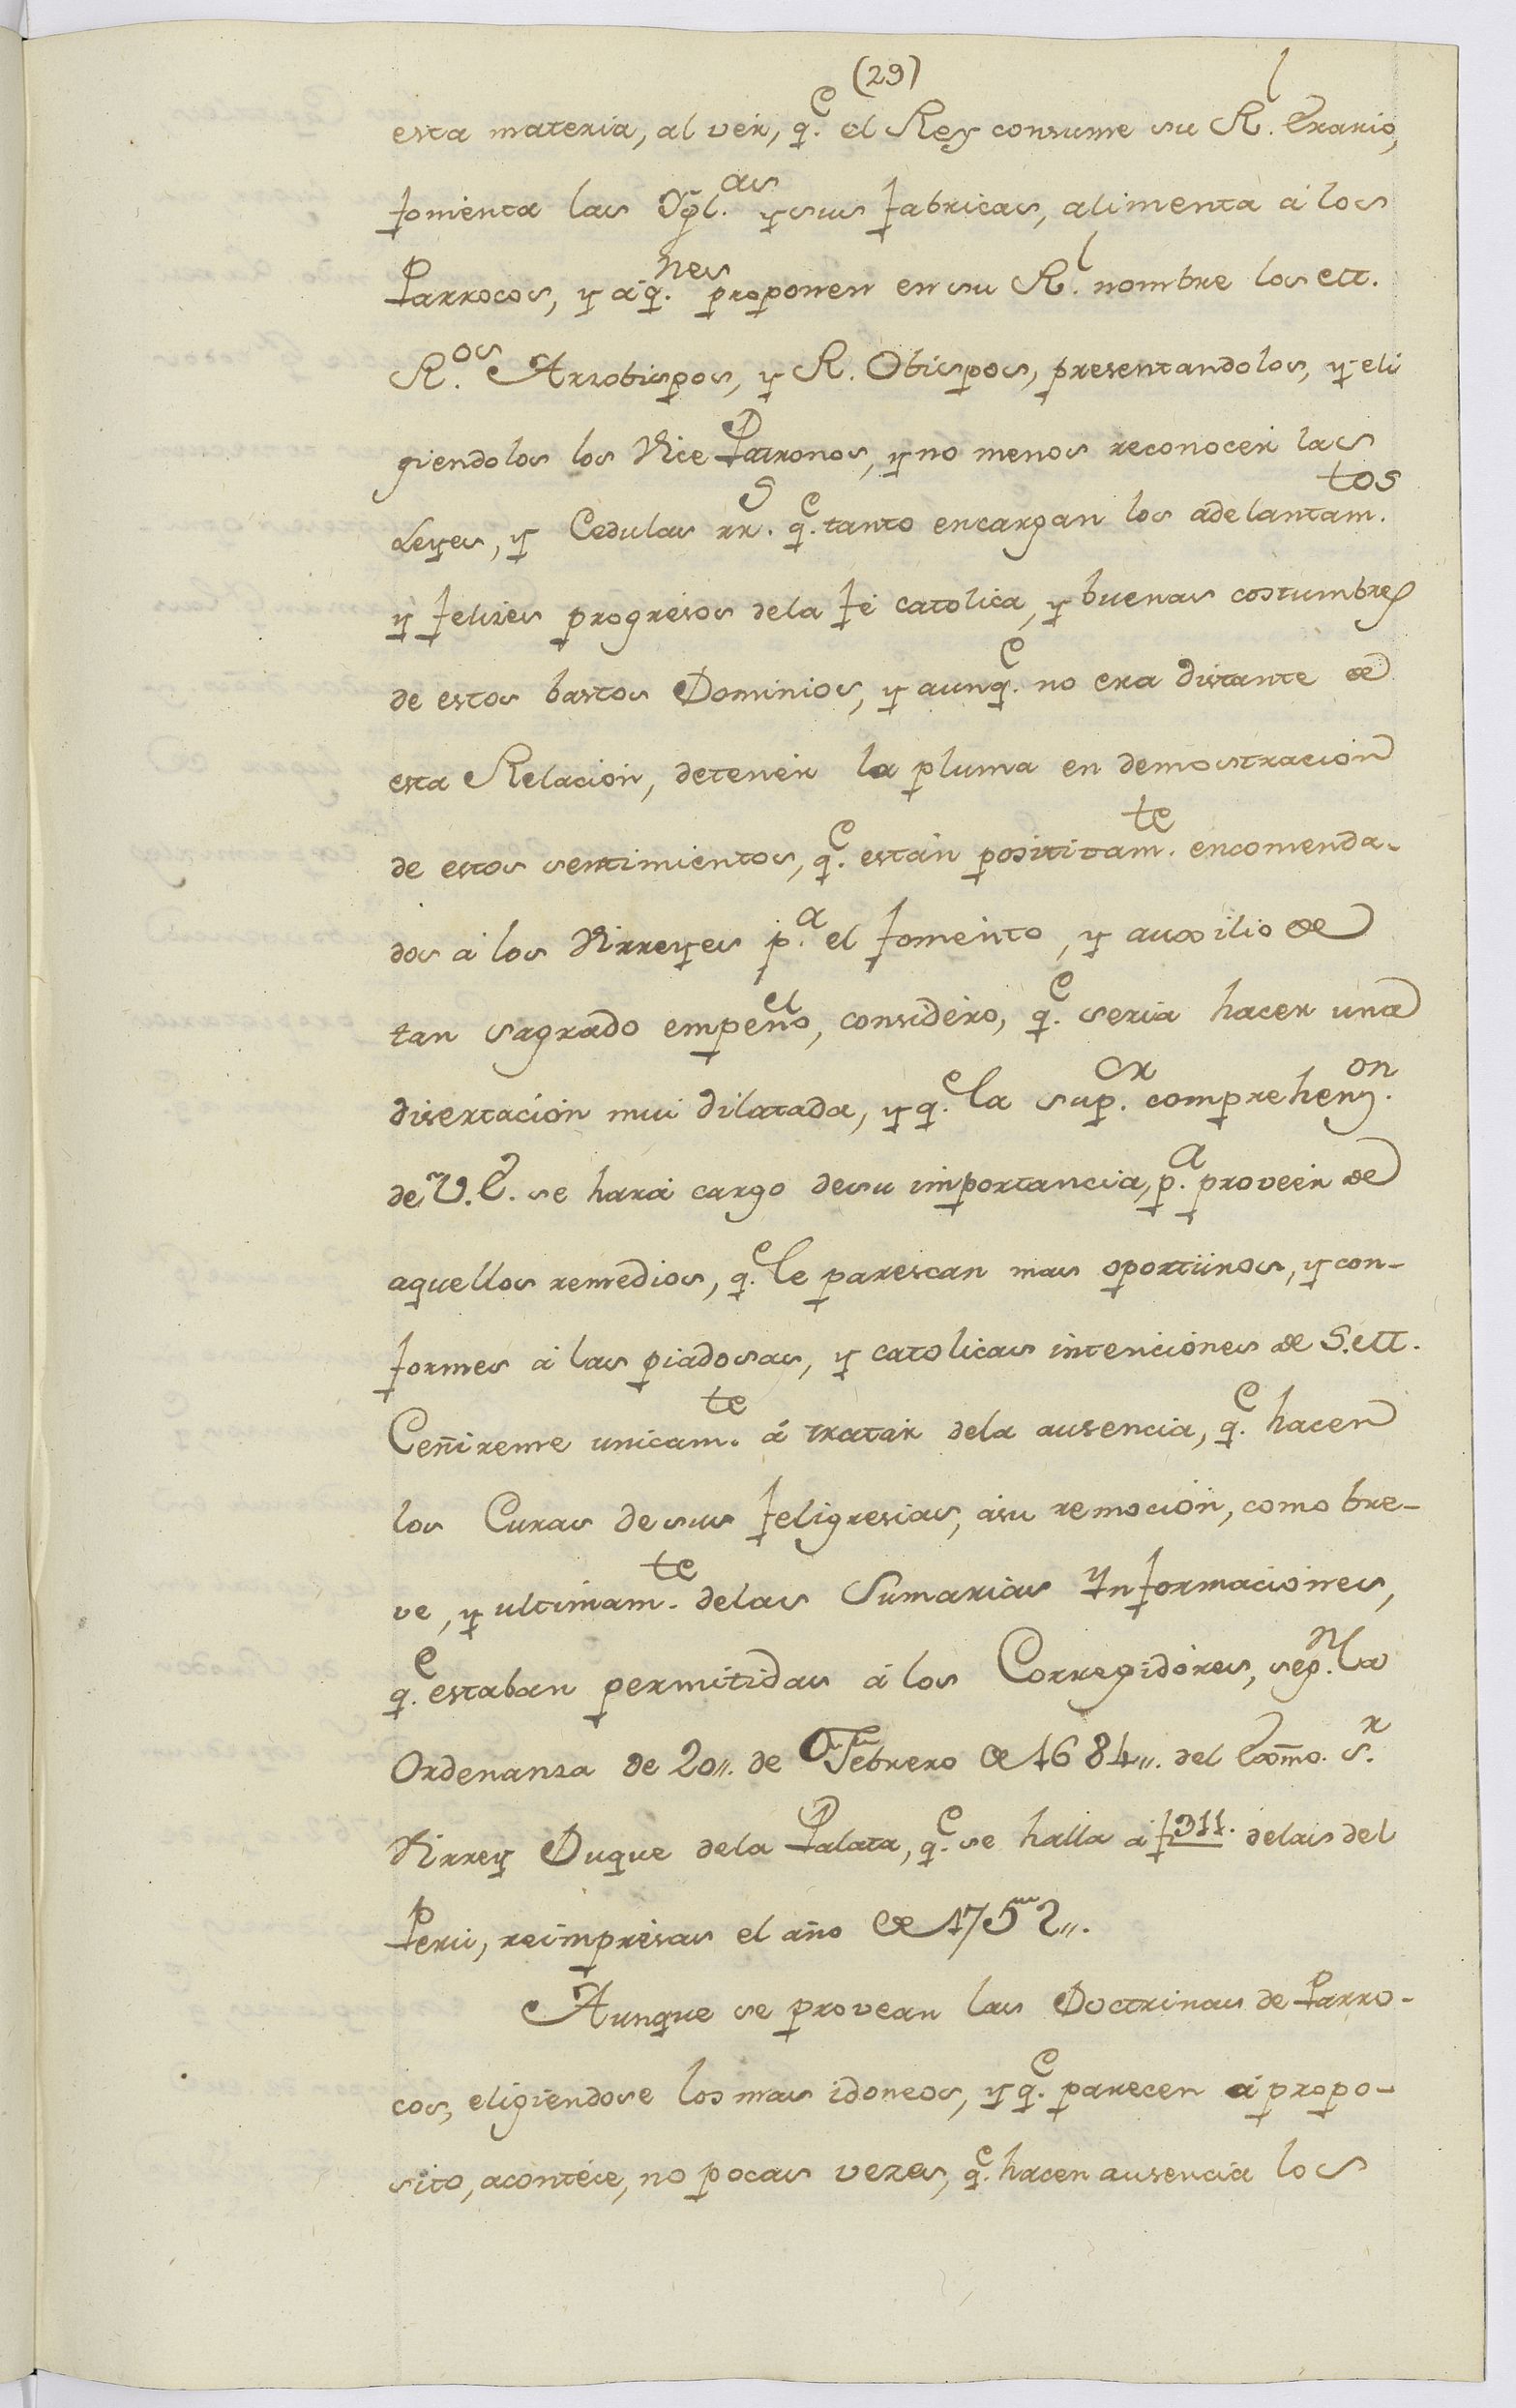 (29)
esta materia, al ver, q.e el Rey consume su R.l Erario,
fomenta las Ygl.as y sus fabricas, alimenta á los
Parrocos, y á q.nes proponen en su R.l nombre los M.
R.os Arzobispos, y R. Obispos, presentandolos, y eli
giendolos los Vice Patronos, y no menos reconocer las
Leyes, y Cedulas rr.s q.e tanto encargan los adelantam.tos
y felizes progresos dela fé catolica, y buenas costumbres
de estos bastos Dominios, y aunq.e no era distante de
esta Relacion, detener la pluma en demostracion
de estos sentimientos, q.e están positivam.te encomenda-
dos á los Virreyes p.a el fomento, y auxilio de
tan sagrado empeño, considero, q.e seria hacer una
disertacion mui dilatada, y q.e la sup.or comprehens.on
de V.E. se hará cargo desu importancia, p.a proveer de
aquellos remedios, q.e le parescan mas oportunos, y con-
formes á las piadosas, y catolicas intenciones de S.M.
Ceñireme unicam.te á tratar dela ausencia, q.e hacen
los Curas desus feligresias, ásu remocion, como bre-
ve, y ultimam.te delas Sumarias Ynformaciones,
q.e estaban permitidas á los Corregidores, seg.n la
Ordenanza de 20,,. de Febrero de 1684,,. del Exmo. S.r
Virrey Duque dela Palata, q.e se halla á f311. delas del
Perú, reimpresas el año de 1752,,.
Aunque se provean las Doctrinas de Parro-
cos, eligiendose los mas idoneos, y q.e parecen á propo-
sito, acontece, no pocas vezes, q.e hacen ausencia los